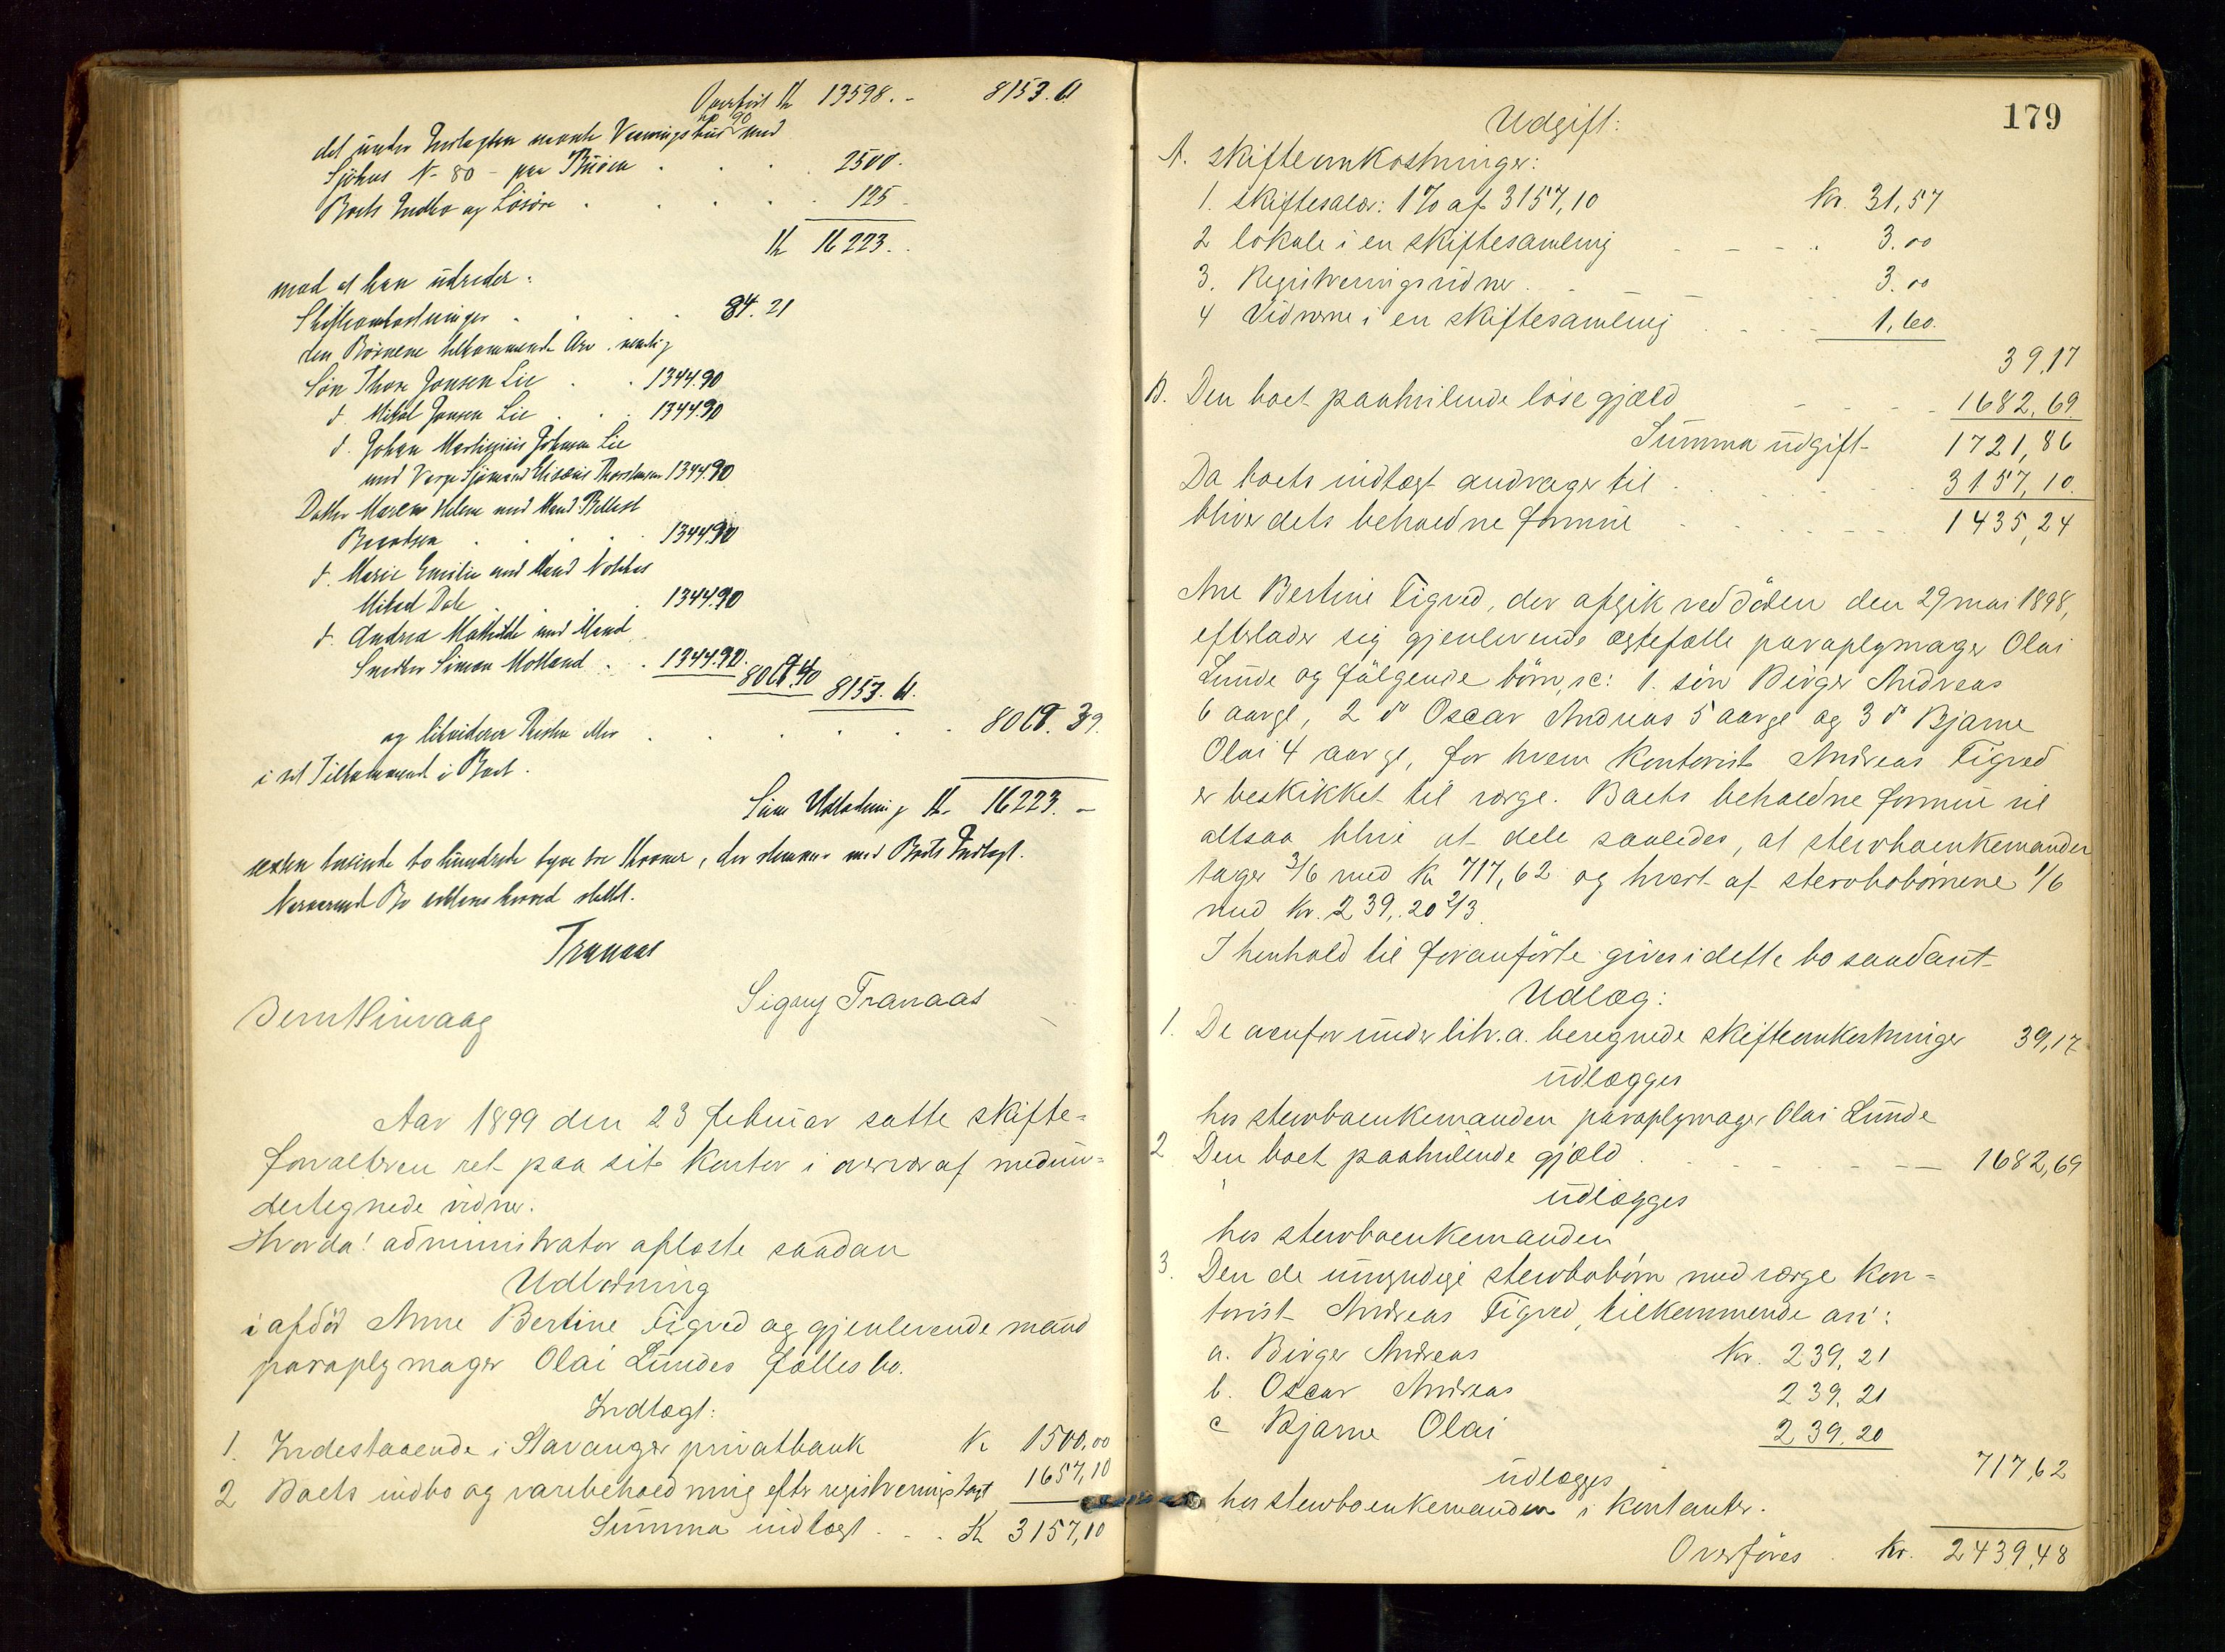 Overført Kr 13598.- 8153.61
det under Indtægten nævnte Vaaningshus med
Sjøhus N- 80 - paa Buøen . . . 2500.-
Boets Indbo og Løsøre . . . . 125.-
Kr 16223.-
mod at han udreder:
Skifteomkostninger . . . 84.21
den Børnene tilkommende Arv. nemlig
Søn Thore Jonsen Lie . . 1344.90
d. Mikal Jonsen Lie . . 1344.90
d. Johan Martinius Johnsen Lie
med Verge Sjømand Elisæus Thorstensen 1344.90
Datter Maren Helene med Mand
1344.90
d. Marie Emilie med Mand
Mikael Dale . . . 1344.90
d. Andrea Mathilde med Mand
Snedker Simon Motland . . 1344.90.
8069.40 8153.61.
og likviderer Resten eller . . . . 8069.39.
i sit Tilkommende i Boet.
Sum Udlodning Kr. 16223.-
sexten tusinde to hundrede tyve tre Kroner, der stemmer med Boets Indtægt.
Nærværende Bo erklæres hermed sluttet.
Tranaas
Signy Tranaas
Bern Hinnvaag
Aar 1899 den 23 februar satte skifte=
forvalteren ret paa sit kontor i overvær af medun=
dertegnede vidner.
Hvorda! administrator oplæste saadan
Udlodning
i afdød Anne Bertine Tigved og gjenlevende mand
paraplymager Olai Lundes fælles bo.
Indtægt:
1. Indestaaende i Stavanger privatbank Kr 1500,00
2 Boets indbo og varebeholdning efter registreringstaxt 1657,10
Summa indtægt . . . Kr 3157,10
179
Udgift:
A. Skifteomkostninger:
1. skiftesalær: 1% af 3157,10 Kr. 31,57
2 lokale i en skiftesamling - - - . 3.00
3. Registreringsvidner . - - - 3.00
4 Vidnerne i en skiftesamling . . - - 1,60.
39,17
B. Den boet paahvilende løse gjæld - - - - 1682,69
Summa udgift- 1721,86
Da boets indtægt andrager til . . . . . . 3157,10.
bliver dets beholdne formue . . . . - - - 1435,24
Ane Bertine Tigved, der afgik ved døden den 29 mai 1898,
efterlader sig gjenlevende ægtefælle paraplymager Olai
Lunde og følgende børn, sc: 1. søn Birger Andreas
6 aar gl, 2 do Oscar Andreas 5 aar gl og 3 do Bjarne
Olai 4 aar gl, for hvem kontorist Andreas Tigved
er beskikket til værge. Boets beholdne formue vil
altsaa blive at dele saaledes, at stervboenkemanden
tager 3/6 med Kr 717,62 og hvert af stervbobørnene 1/6
med Kr. 239,20 2/3.
I henhold til foranførte gives i dette bo saadant
Udlæg:
1. De ovenfor under litr. a. beregnede skifteomkostninger 39,17
udlægges
hos stervboenkemanden paraplymager Olai Lunde
2 Den boet paahvilende gjæld . . - - - - - 1682,69
udlægges
hos stervboenkemanden
3. Den de umyndige stervbobørn med værge kon=
torist Andreas Tigved, tilkommende arv:
a. Birger Andreas Kr. 239,21
b. Oscar Andreas 239,21
c Bjarne Olai 239,20
717,62
udlægges
hos stervboenkemanden i kontanter.
Overføres . Kr. 2439,48